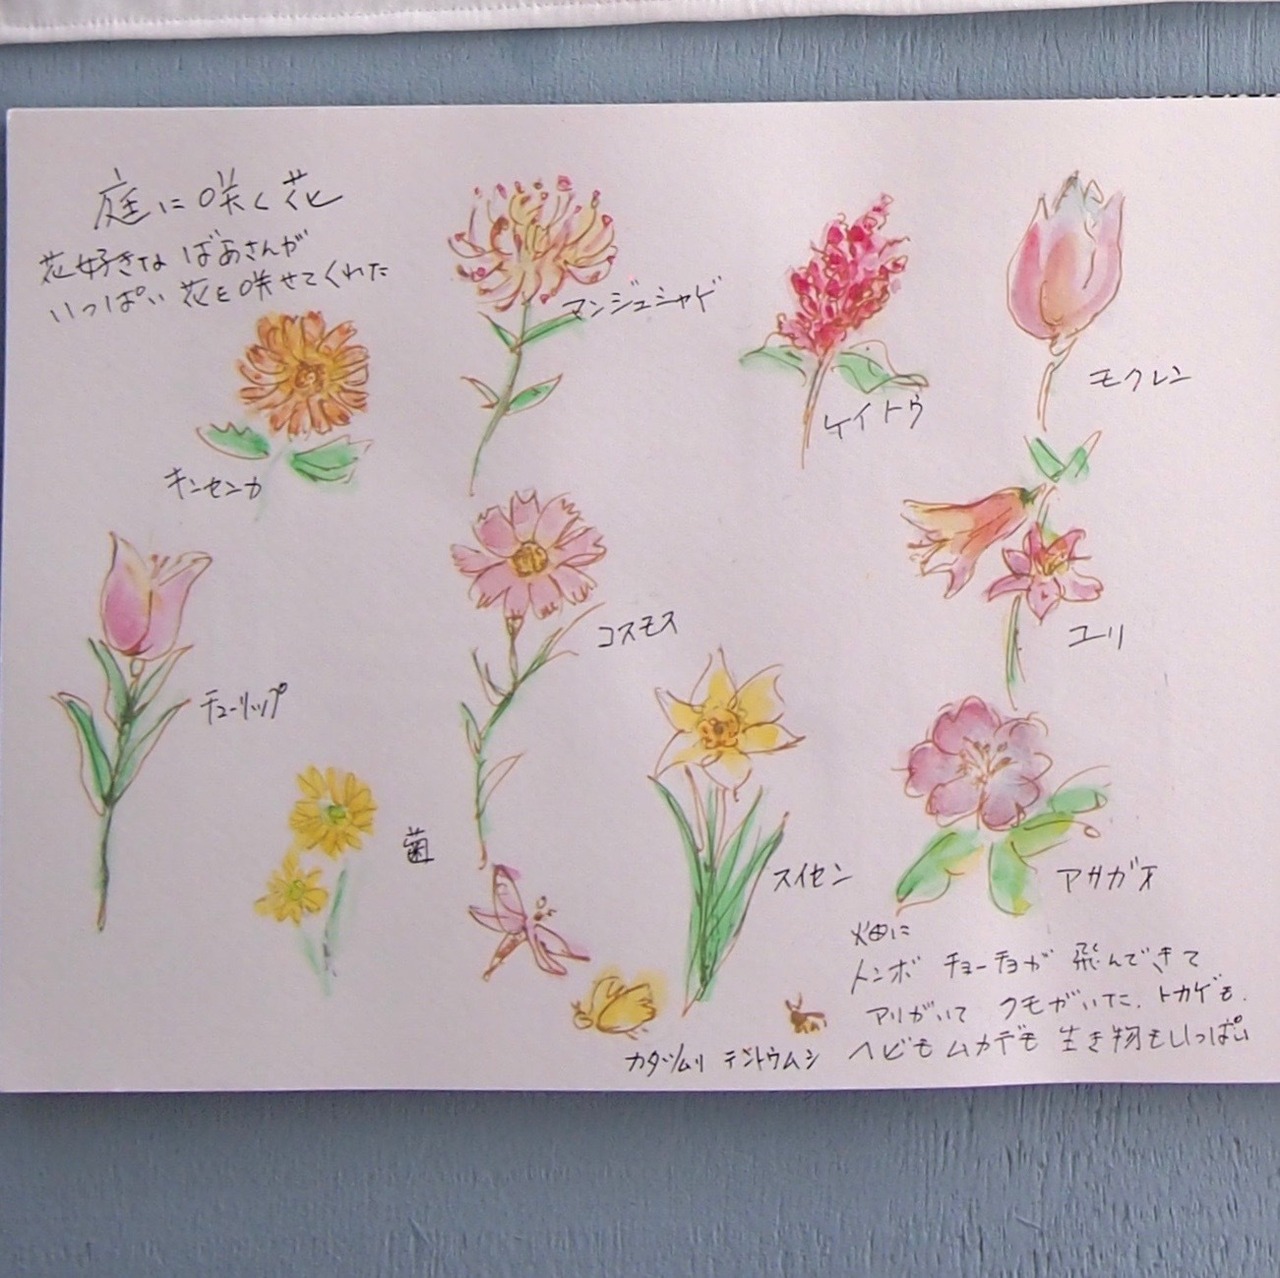 庭に咲く花
花好きな ばあさんが
いっぱい 花を咲せてくれた
マンジュシャゲ
ケイトウ
モクレン
キンセンカ
コスモス
ユリ
チューリップ
菌
スイセン
アサガオ
畑に
トンボ チョーチョが 飛んできて
アリがいて クモがいた. トカゲも.
カタツムリ テントウムシ ヘビも ムカデも 生き物もいっぱい